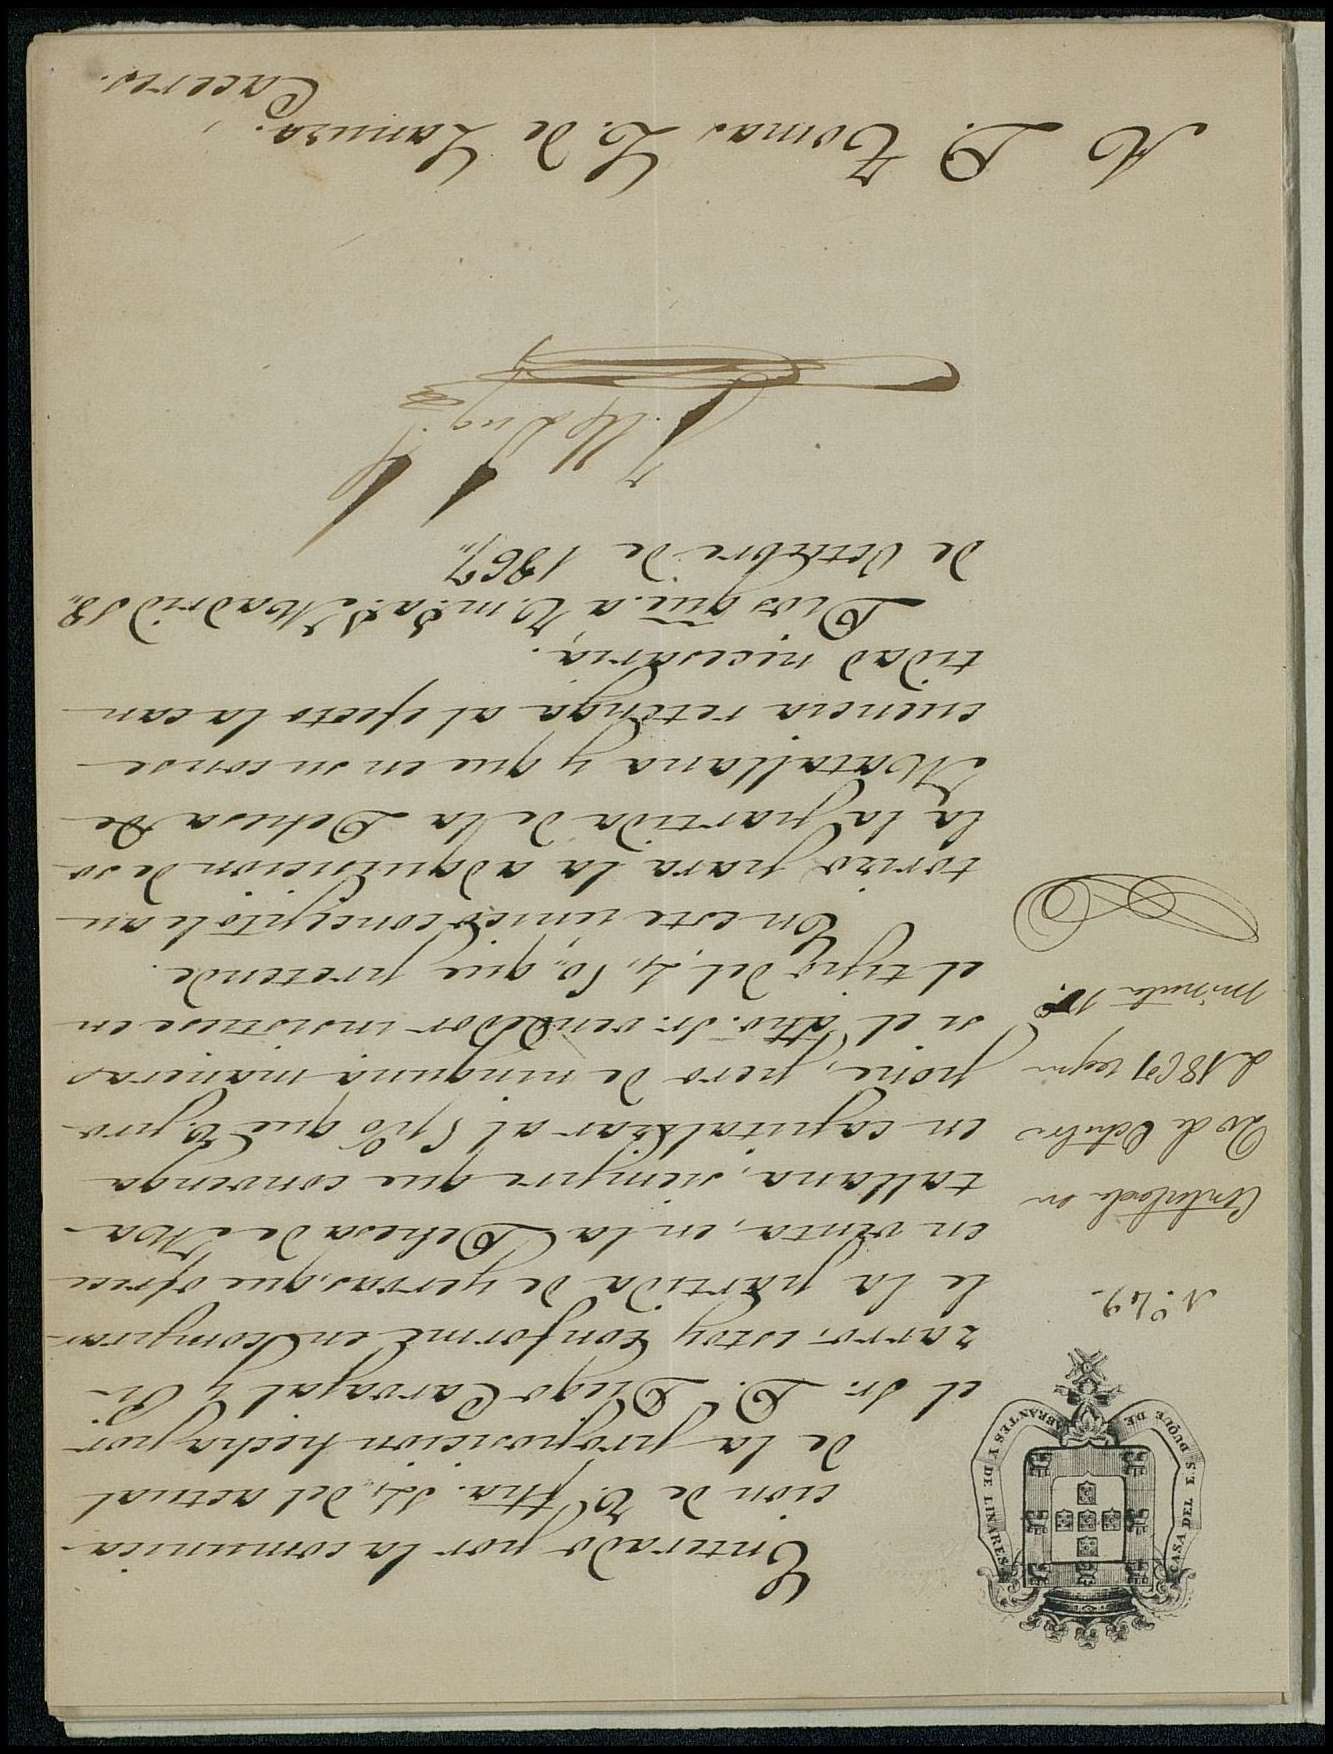 CASA DEL E.S. DUQUE DE ABRANTES Y DE LINARES
N.º 49.
Contestada en
20 de Octubre
d 1867 segun
minuta
Enterado por la comunica-
cion de V. fha. 14, del actual
de la proposicion hecha por
el Sr. D. Diego Carvajal y Pi-
zarro, estoy conforme en comprar-
le la partida de yervas, que ofrece
en venta, en la Dehesa de Ma-
tallana, siempre que convenga
en capitalizar al 5 p% que V. pro-
pone, pero de ninguna manera
si el dho. Sr. vendedor insistiese en
el tipo del, que pretende.
En este unico concepto le au
torizo para la adquisicion de so
la la partida de la Dehesa de
Matallana y que en su conse
cuencia retenga al efecto la can
tidad necesaria.
Dios gūe. a V. m.s a.s Madrid 18,,
de Octubre de 1867,,
A D. Tomas L. de Lanuza.
Caceres.